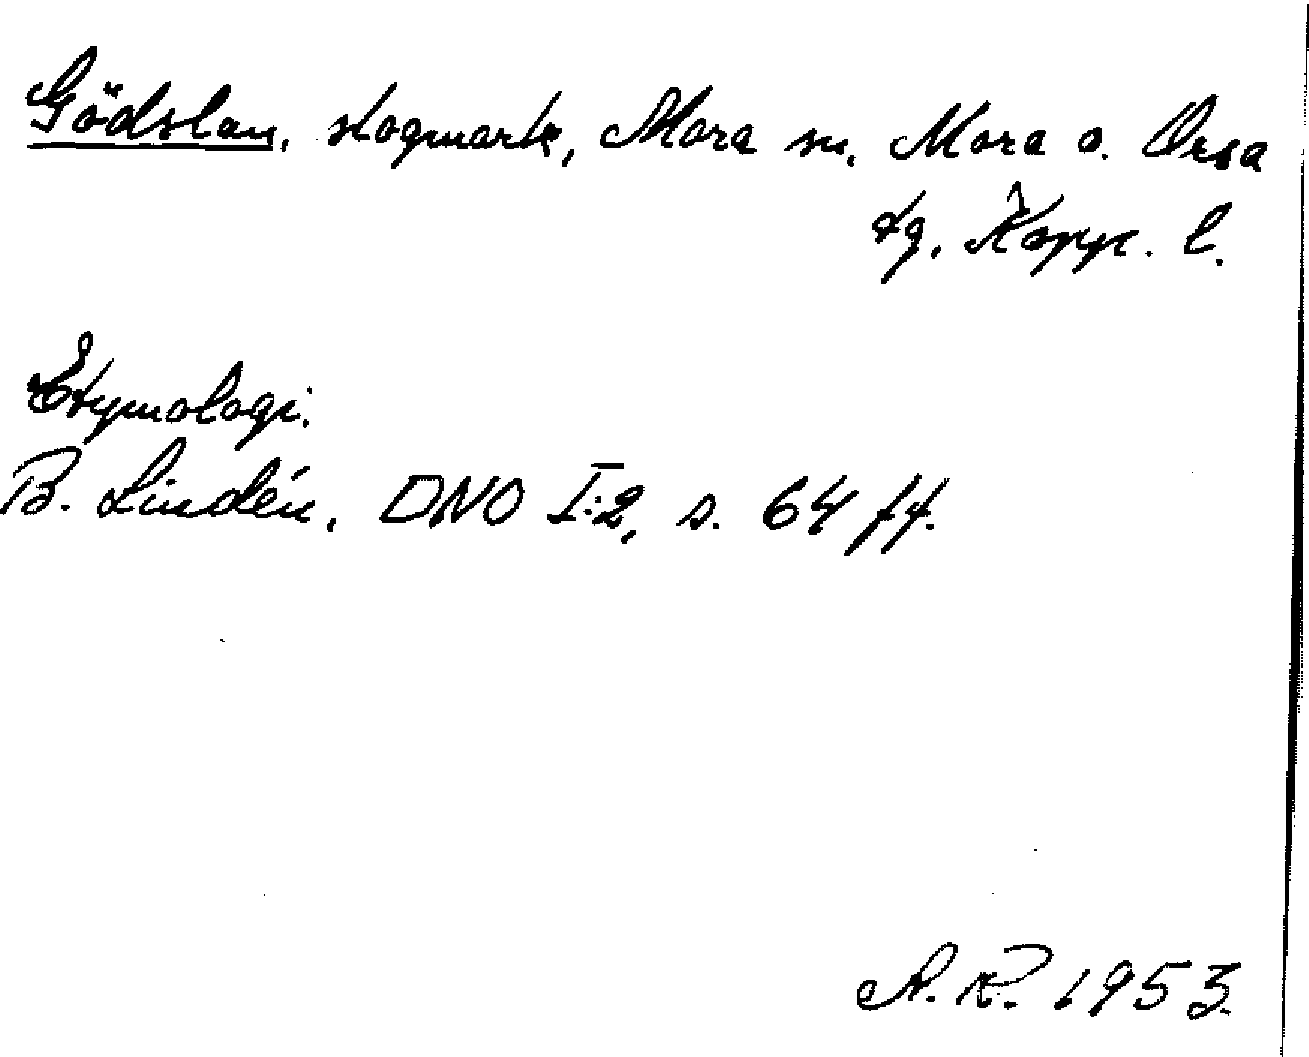 Gödslan, skogmark, Mora sn, Mora o. Orsa
tg, Kopp. l.
Etymologi.
B. Lindén, DNO I:2, s. 64 ff.
A.R. 1953.